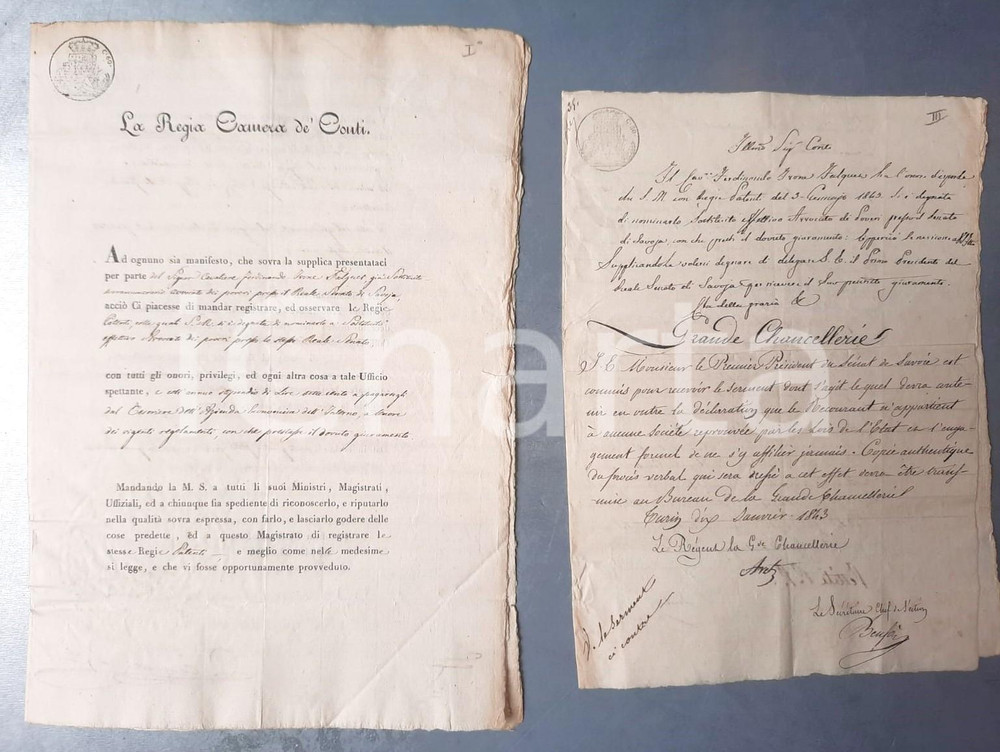 I
La Regia Camera de' Conti.
Ad ognuno sia manifesto, che sovra la supplica presentataci
per parte del Signor Cavaliere Ferdinando
avvocato dei poveri presso il Reale Senato di Savoja,
acciò Ci piacesse di mandar registrare, ed osservare le Regie
Patenti, colle quali S. M. si è degnata di nominarlo a Sostituito
effettivo Avvocato dei poveri presso lo stesso Reale Senato
con tutti gli onori, privilegi, ed ogni altra cosa a tale Uffizio
spettante, e coll' annuo stipendio di Lire
dal Tesoriere dell' Azienda Economica dell' Interno, a tenore
dei vigenti regolamenti, con che prestasse il dovuto giuramento
Mandando la M. S. a tutti li suoi Ministri, Magistrati,
Uffiziali, ed a chiunque sia spediente di riconoscerlo, e riputarlo
nella qualità sovra espressa, con farlo, e lasciarlo godere delle
cose predette, ed a questo Magistrato di registrare le
stesse Regie Patenti e meglio come nelle medesime
si legge, e che vi fosse opportunamente provveduto.
III
Illmo Sigr Conte
Il Cavre Ferdinando ha l'onore d'esporle
che S. M. con Regie Patenti del 3 Gennajo 1843 si è degnata
di nominarlo Sostituito effettivo Avvocato di Poveri presso il Senato
di Savoja, con che presti il dovuto giuramento:
Supplicandola volersi degnare di delegare S. E. il Primo Presidente del
Reale Senato di Savoja per ricevere il suo prescritto giuramento.
Che della grazia &
Grande Chancellerie
S. E. Monsieur le Premier Président du Sénat de Savoie est
commis pour recevoir le serment dont s'agit lequel devra conte-
nir en outre la déclaration que le Recourant n'appartient
à aucune Société reprouvée par les Lois de l'Etat et l'enga-
gement formel de ne s'y affilier jamais: Copie authentique
du procès verbal qui sera dressé a cet effet devra être trans-
mise au Bureau de la Grande Chancellerie
Turin dix Janvier 1843
Le Régent la Gde Chancellerie
Le Secrétaire Chef de Section
V. le Serment
ci contre
finarte